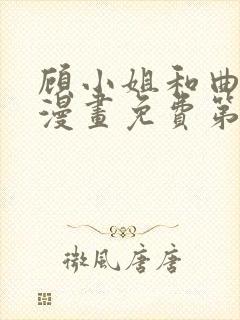 顾小姐和曲
漫畫免費第
微風唐唐